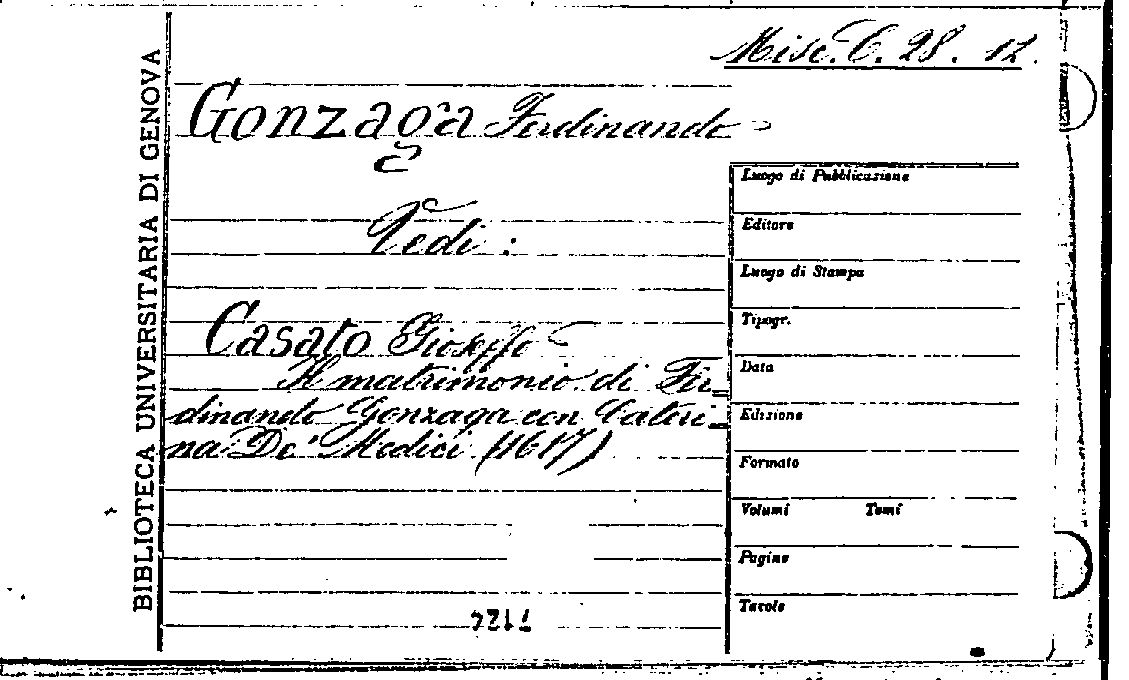 Misc. C. 28. 12.
BIBLIOTECA UNIVERSITARIA DI GENOVA
Gonzaga Ferdinando
Vedi :
Casato Gioseffo
Il matrimonio di Fer-
dinando Gonzaga con Cateri-
na De' Medici (1617)
Luogo di Pubblicazione
Editore
Luogo di Stampa
Tipogr.
Data
Edizione
Formato
Volumi Tomi
Pagine
Tavole